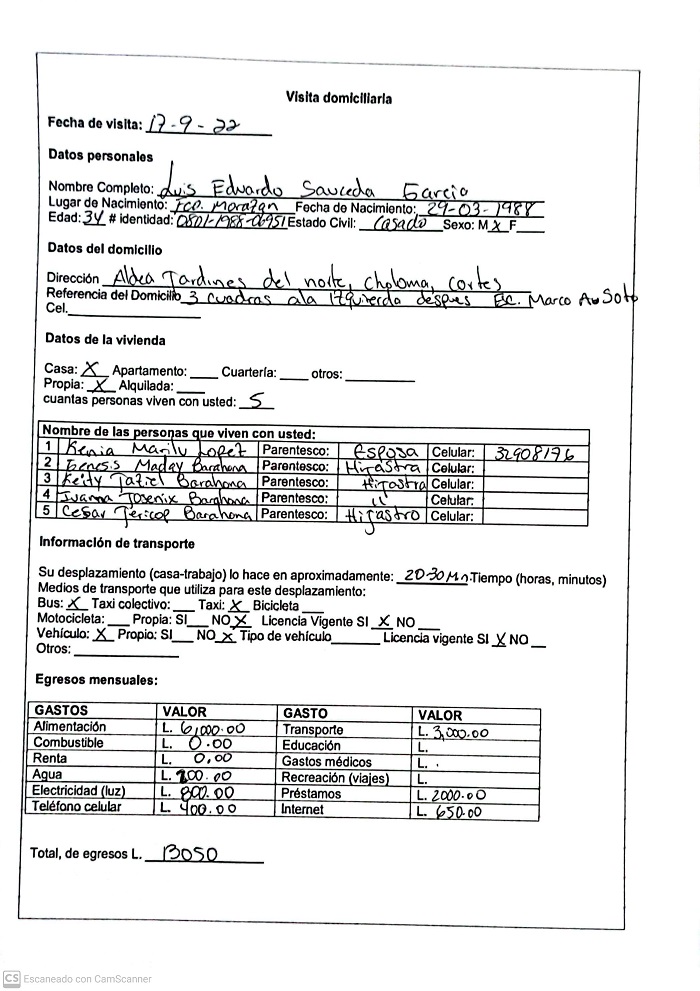 Visita domiciliaria
Fecha de visita: 17-9-22
Datos personales
Nombre Completo: Luis Edvardo Sauceda Garcia
Lugar de Nacimiento: Fco. Morazan Fecha de Nacimiento: 29-03-1988
Edad: 34 # identidad: 0801-1988-06951 Estado Civil: Casado Sexo: M X F
Datos del domicilio
Dirección Aldea Jardines del norte, choloma, cortes
Referencia del Domicilio 3 cuadras ala Izquierda despues Esc. Marco Au Soto
Cel.
Datos de la vivienda
Casa: X Apartamento: Cuartería: otros:
Propia: X Alquilada:
cuantas personas viven con usted: 5
Nombre de las personas que viven con usted:
1 Kenia Marilu Lopez Parentesco: Esposa Celular: 32908176
2 Genesis Maday Barahona Parentesco: Hijastra Celular:
3 Keidy Barahona Parentesco: Hijastra Celular:
4 Barahona Parentesco: " Celular:
5 Cesar Jericop Barahona Parentesco: Hijastro Celular:
Información de transporte
Su desplazamiento (casa-trabajo) lo hace en aproximadamente: 20-30 Mn. Tiempo (horas, minutos)
Medios de transporte que utiliza para este desplazamiento:
Bus: X Taxi colectivo: Taxi: X Bicicleta
Motocicleta: Propia: SI NO X Licencia Vigente SI X NO
Vehículo: X Propio: SI NO X Tipo de vehículo Licencia vigente SI X NO
Otros:
Egresos mensuales:
GASTOS VALOR GASTO VALOR
Alimentación L. 6,000.00 Transporte L. 3,000.00
Combustible L. 0.00 Educación L.
Renta L. 0,00 Gastos médicos L. .
Agua L. 200.00 Recreación (viajes) L.
Electricidad (luz) L. 800.00 Préstamos L. 2000.00
Teléfono celular L. 400.00 Internet L. 650.00
Total, de egresos L. 13050
CS Escaneado con CamScanner